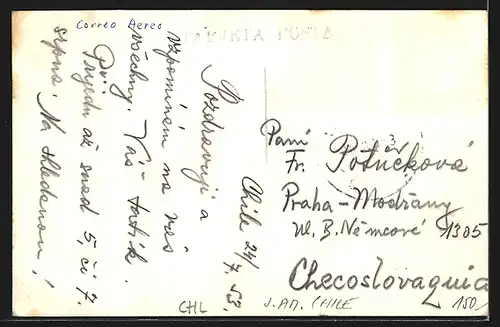 Correo Aereo
TARJETA POSTAL
Chile 24/7. 53.
Pozdravuji a
vzpomínám na vás
všechny. Váš tatík.
Příjedu až snad 5. či 7.
srpna. Na shledanou!
Paní
Fr. Potůčková
Praha - Modřany
Ul. B. Němcové 1305
Checoslovaquia
CHL
J. AM. CHILE
150